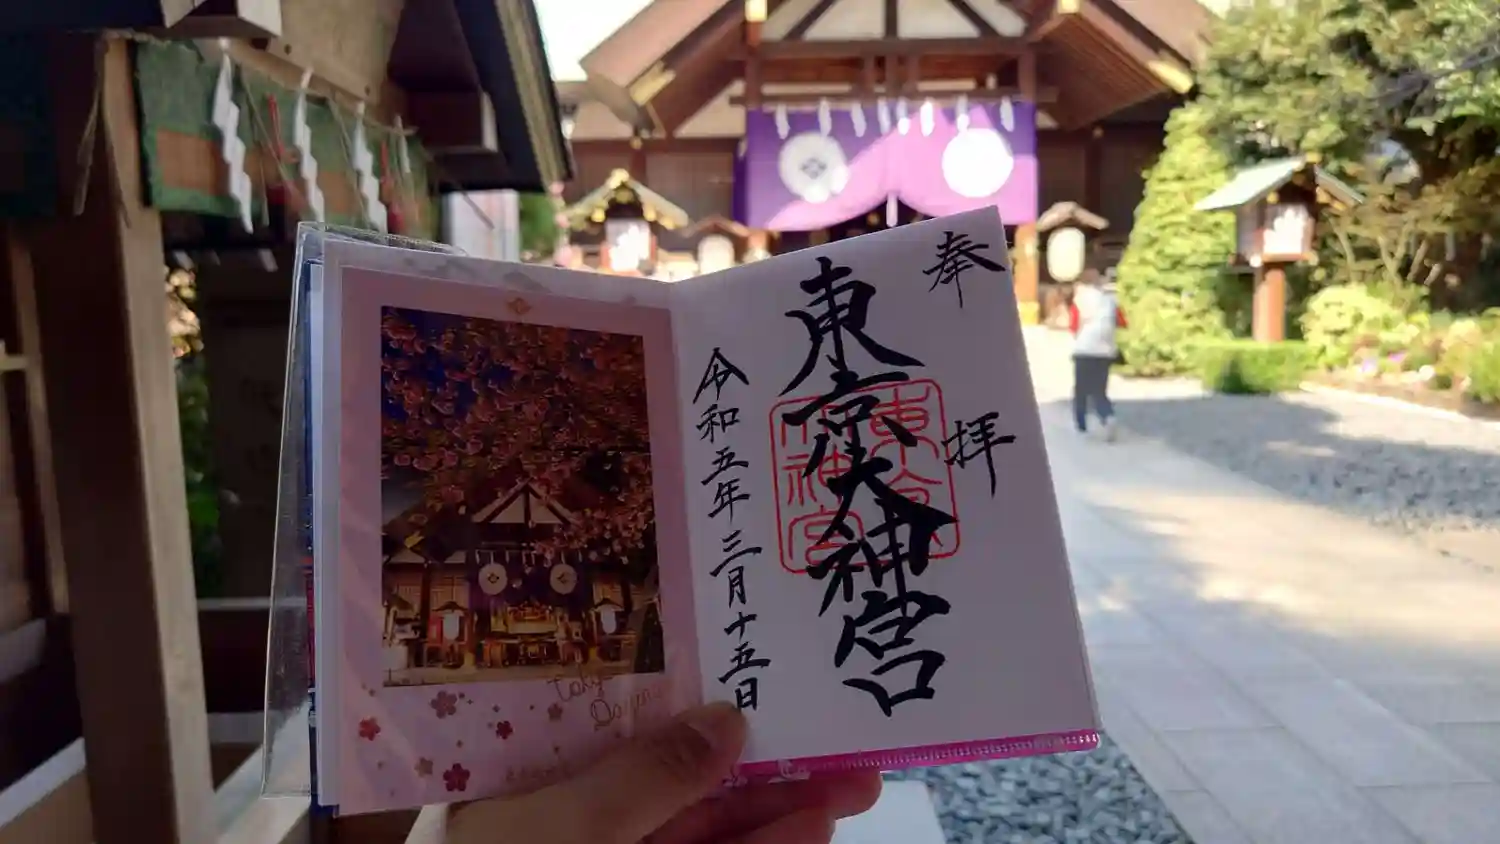 奉拝
東京大神宮
東京大神宮
令和五年三月十五日
Tokyo